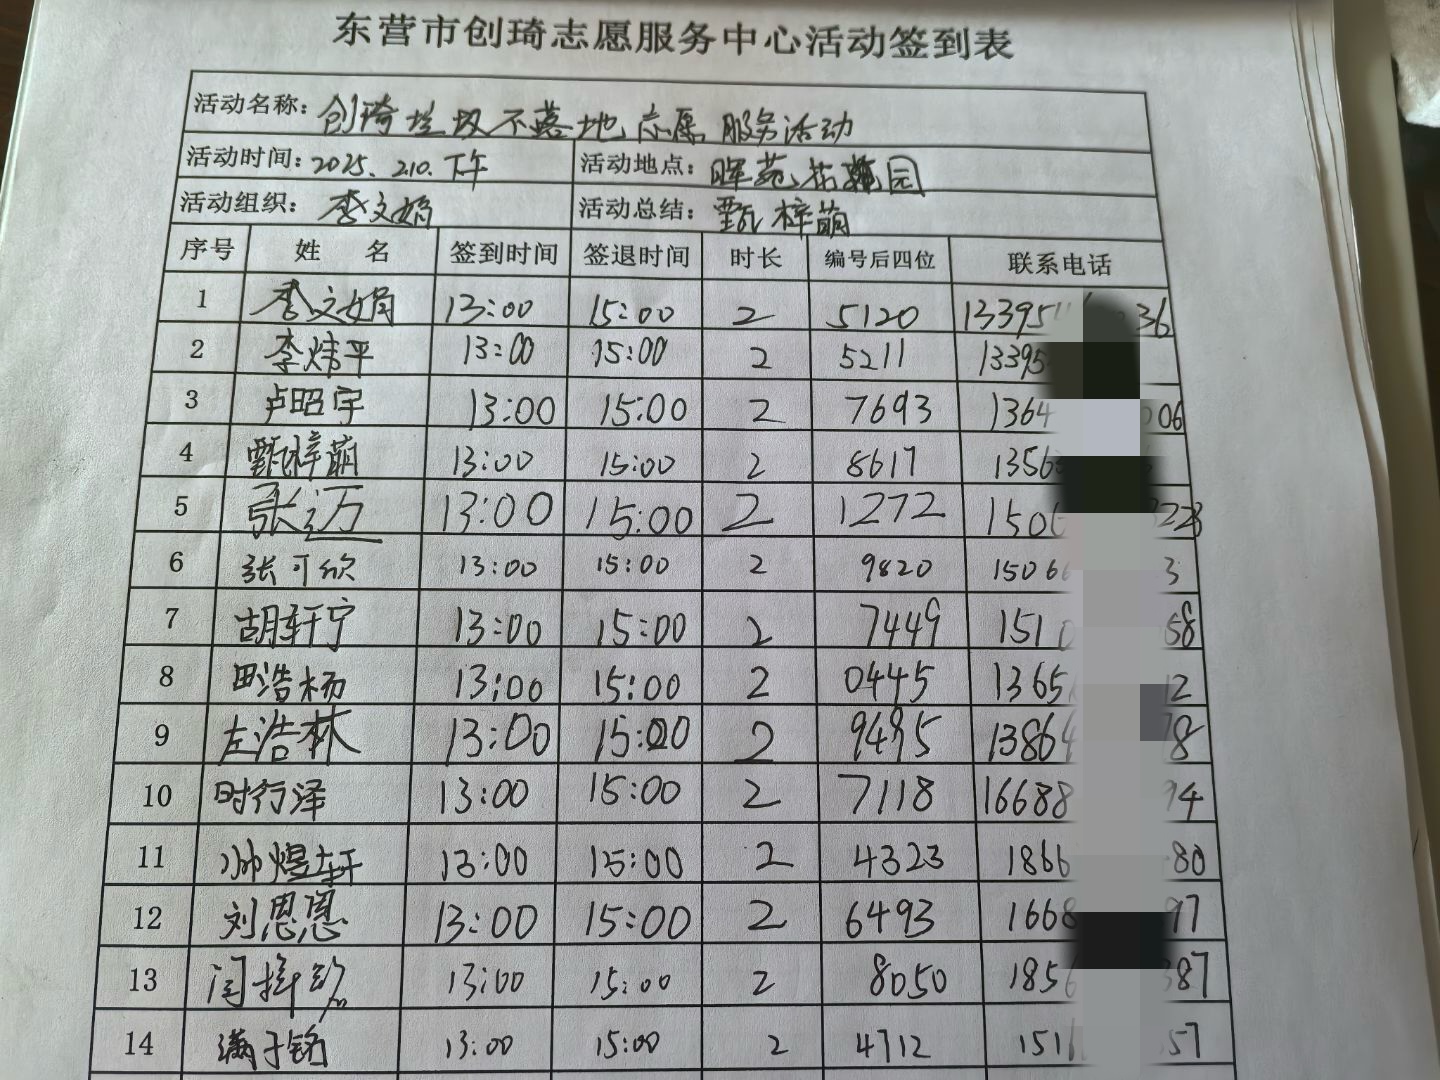 东营市创琦志愿服务中心活动签到表
活动名称: 创琦垃圾不落地志愿服务活动
活动时间: 2025.2.10.下午 活动地点: 晖苑 园
活动组织: 李文娟 活动总结: 甄梓萌
序号 姓名 签到时间 签退时间 时长 编号后四位 联系电话
1 李文娟 13:00 15:00 2 5120 13395 36
2 李炜平 13:00 15:00 2 5211 13395
3 卢昭宇 13:00 15:00 2 7693 1364 06
4 甄梓萌 13:00 15:00 2 8617 1356
5 张迈 13:00 15:00 2 1272 150 223
6 张可欣 13:00 15:00 2 9820 15066 3
7 胡轩宁 13:00 15:00 2 7449 151 58
8 田浩杨 13:00 15:00 2 0445 1365 12
9 左浩林 13:00 15:00 2 9495 13864 78
10 时行泽 13:00 15:00 2 7118 16688 94
11 帅煜轩 13:00 15:00 2 4323 1866 80
12 刘思恩 13:00 15:00 2 6493 1668 97
13 闫 13:00 15:00 2 8050 185 387
14 满于铭 13:00 15:00 2 4712 151 57